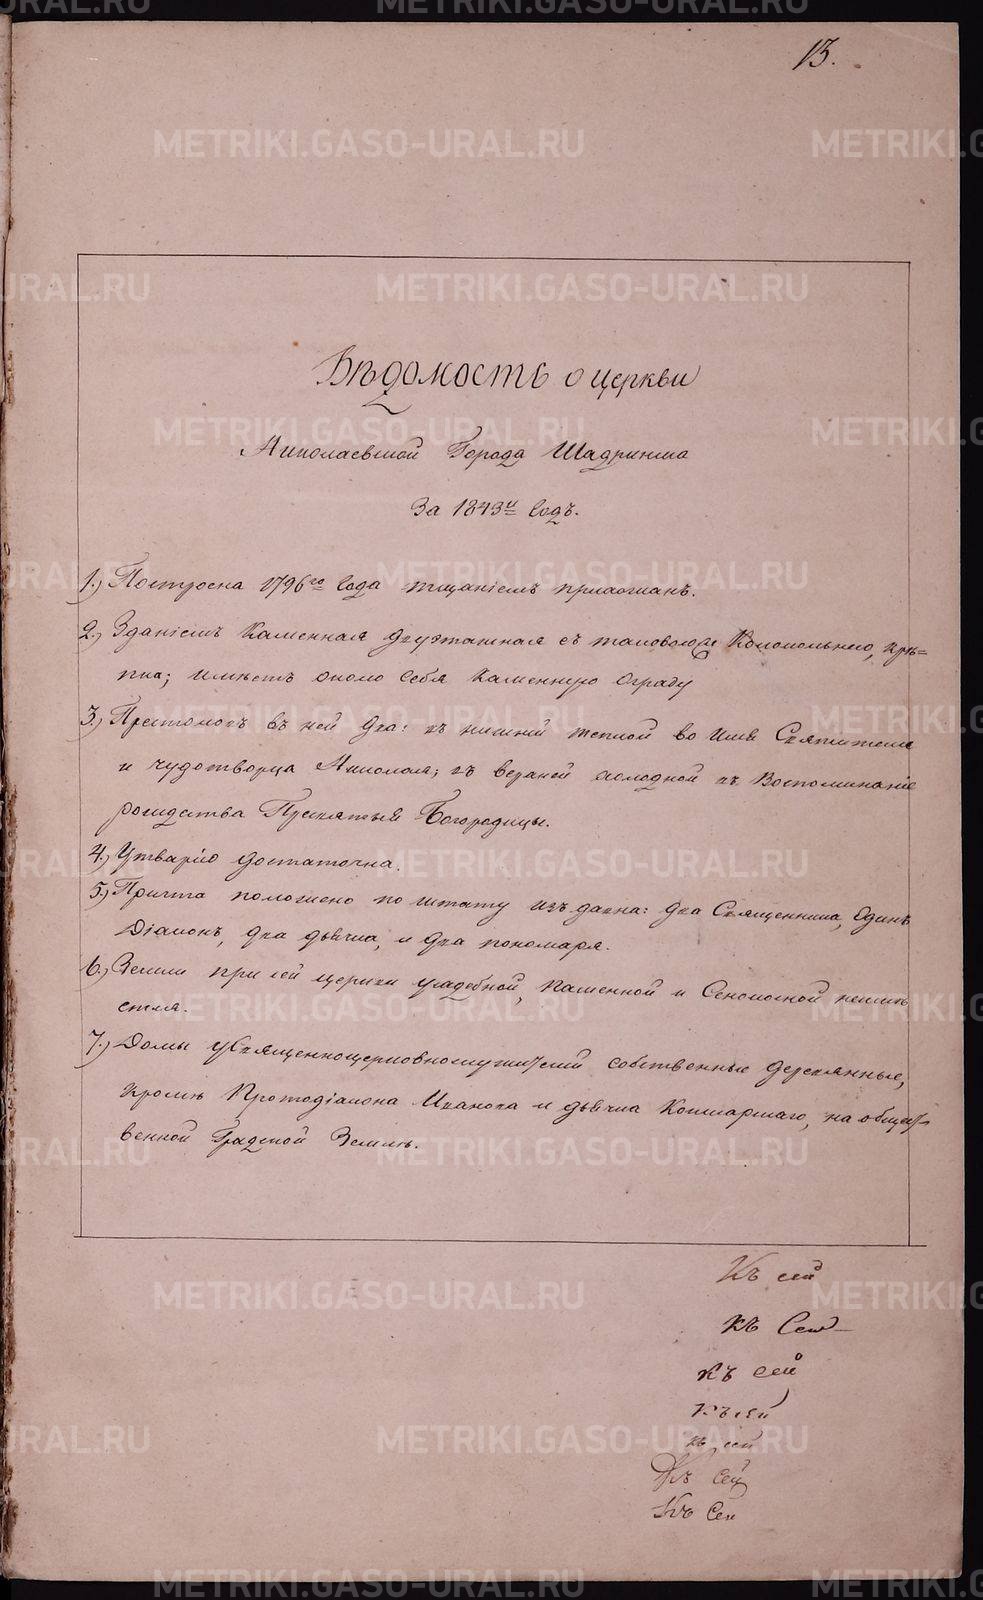 13.
Вѣдомость о церкви
Николаевской Города Шадринска
За 1843й Годъ.
1.) Построена 1796го Года тщаніемъ прихожанъ.
2.) Зданіемъ Каменная двухэтажная съ таковою же Колокольнею, крѣ=
пка; имѣетъ около себя Каменную Ограду
3.) Престоловъ въ ней два: въ нижней теплой во Имя Святителя
и чудотворца Николая; въ верхней холодной въ Воспоминаніе
рождества Пресвятыя Богородицы.
4.) Утварію достаточна.
5.) Причта положено по штату издавна: два Священника, Одинъ
Діаконъ, два дьячка, и два пономаря.
6.) Земли при сей церкви усадебной, Пашенной и Сенокосной неимѣ
ется.
7.) Домы у Священноцерковнослужителей собственные деревянные,
кромѣ Протодіакона Иванова и дьячка Кокшарскаго, на общест
венной Градской Землѣ.
Къ сей
Къ Сей
Къ сей
Къ сей
къ сей
Къ Сей
Къ Сей
METRIKI.GASO-URAL.RU